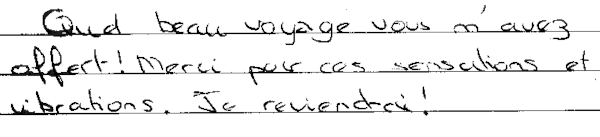 Quel beau voyage vous m'avez
offert! Merci pour ces sensations et
vibrations. Je reviendrai!